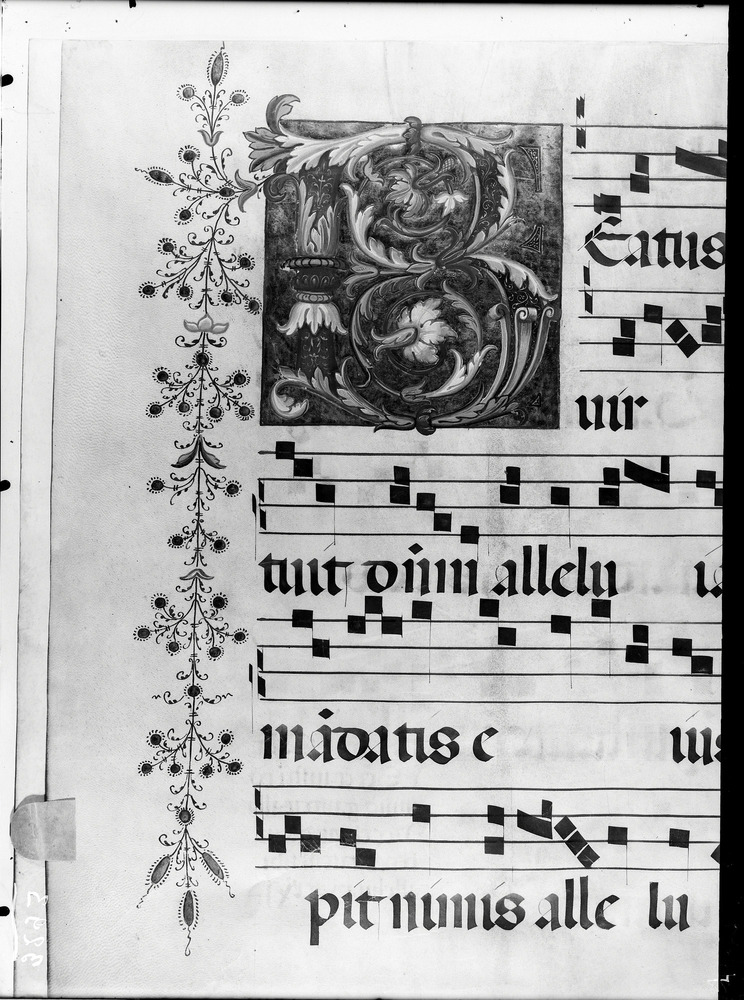 BEatus
uir
tuit dn̄m allelu ia
mādatis e ius
pit nimis alle lu